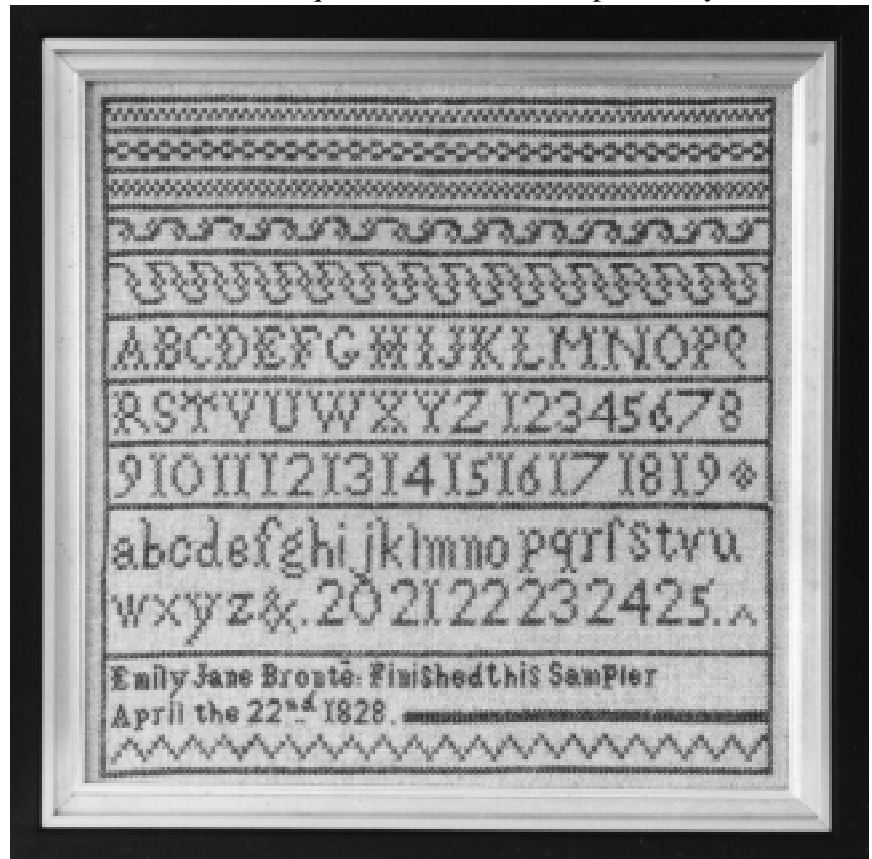 ABCDEFGHIJKLMNOPQ
RSTVUWXYZ 12345678
9 10 11 12 13 14 15 16 17 18 19
abcdefghijklmnopqrſstvu
wxyz&. 20 21 22 23 24 25.
Emily Jane Brontë: Finished this Sampler
April the 22nd 1828.